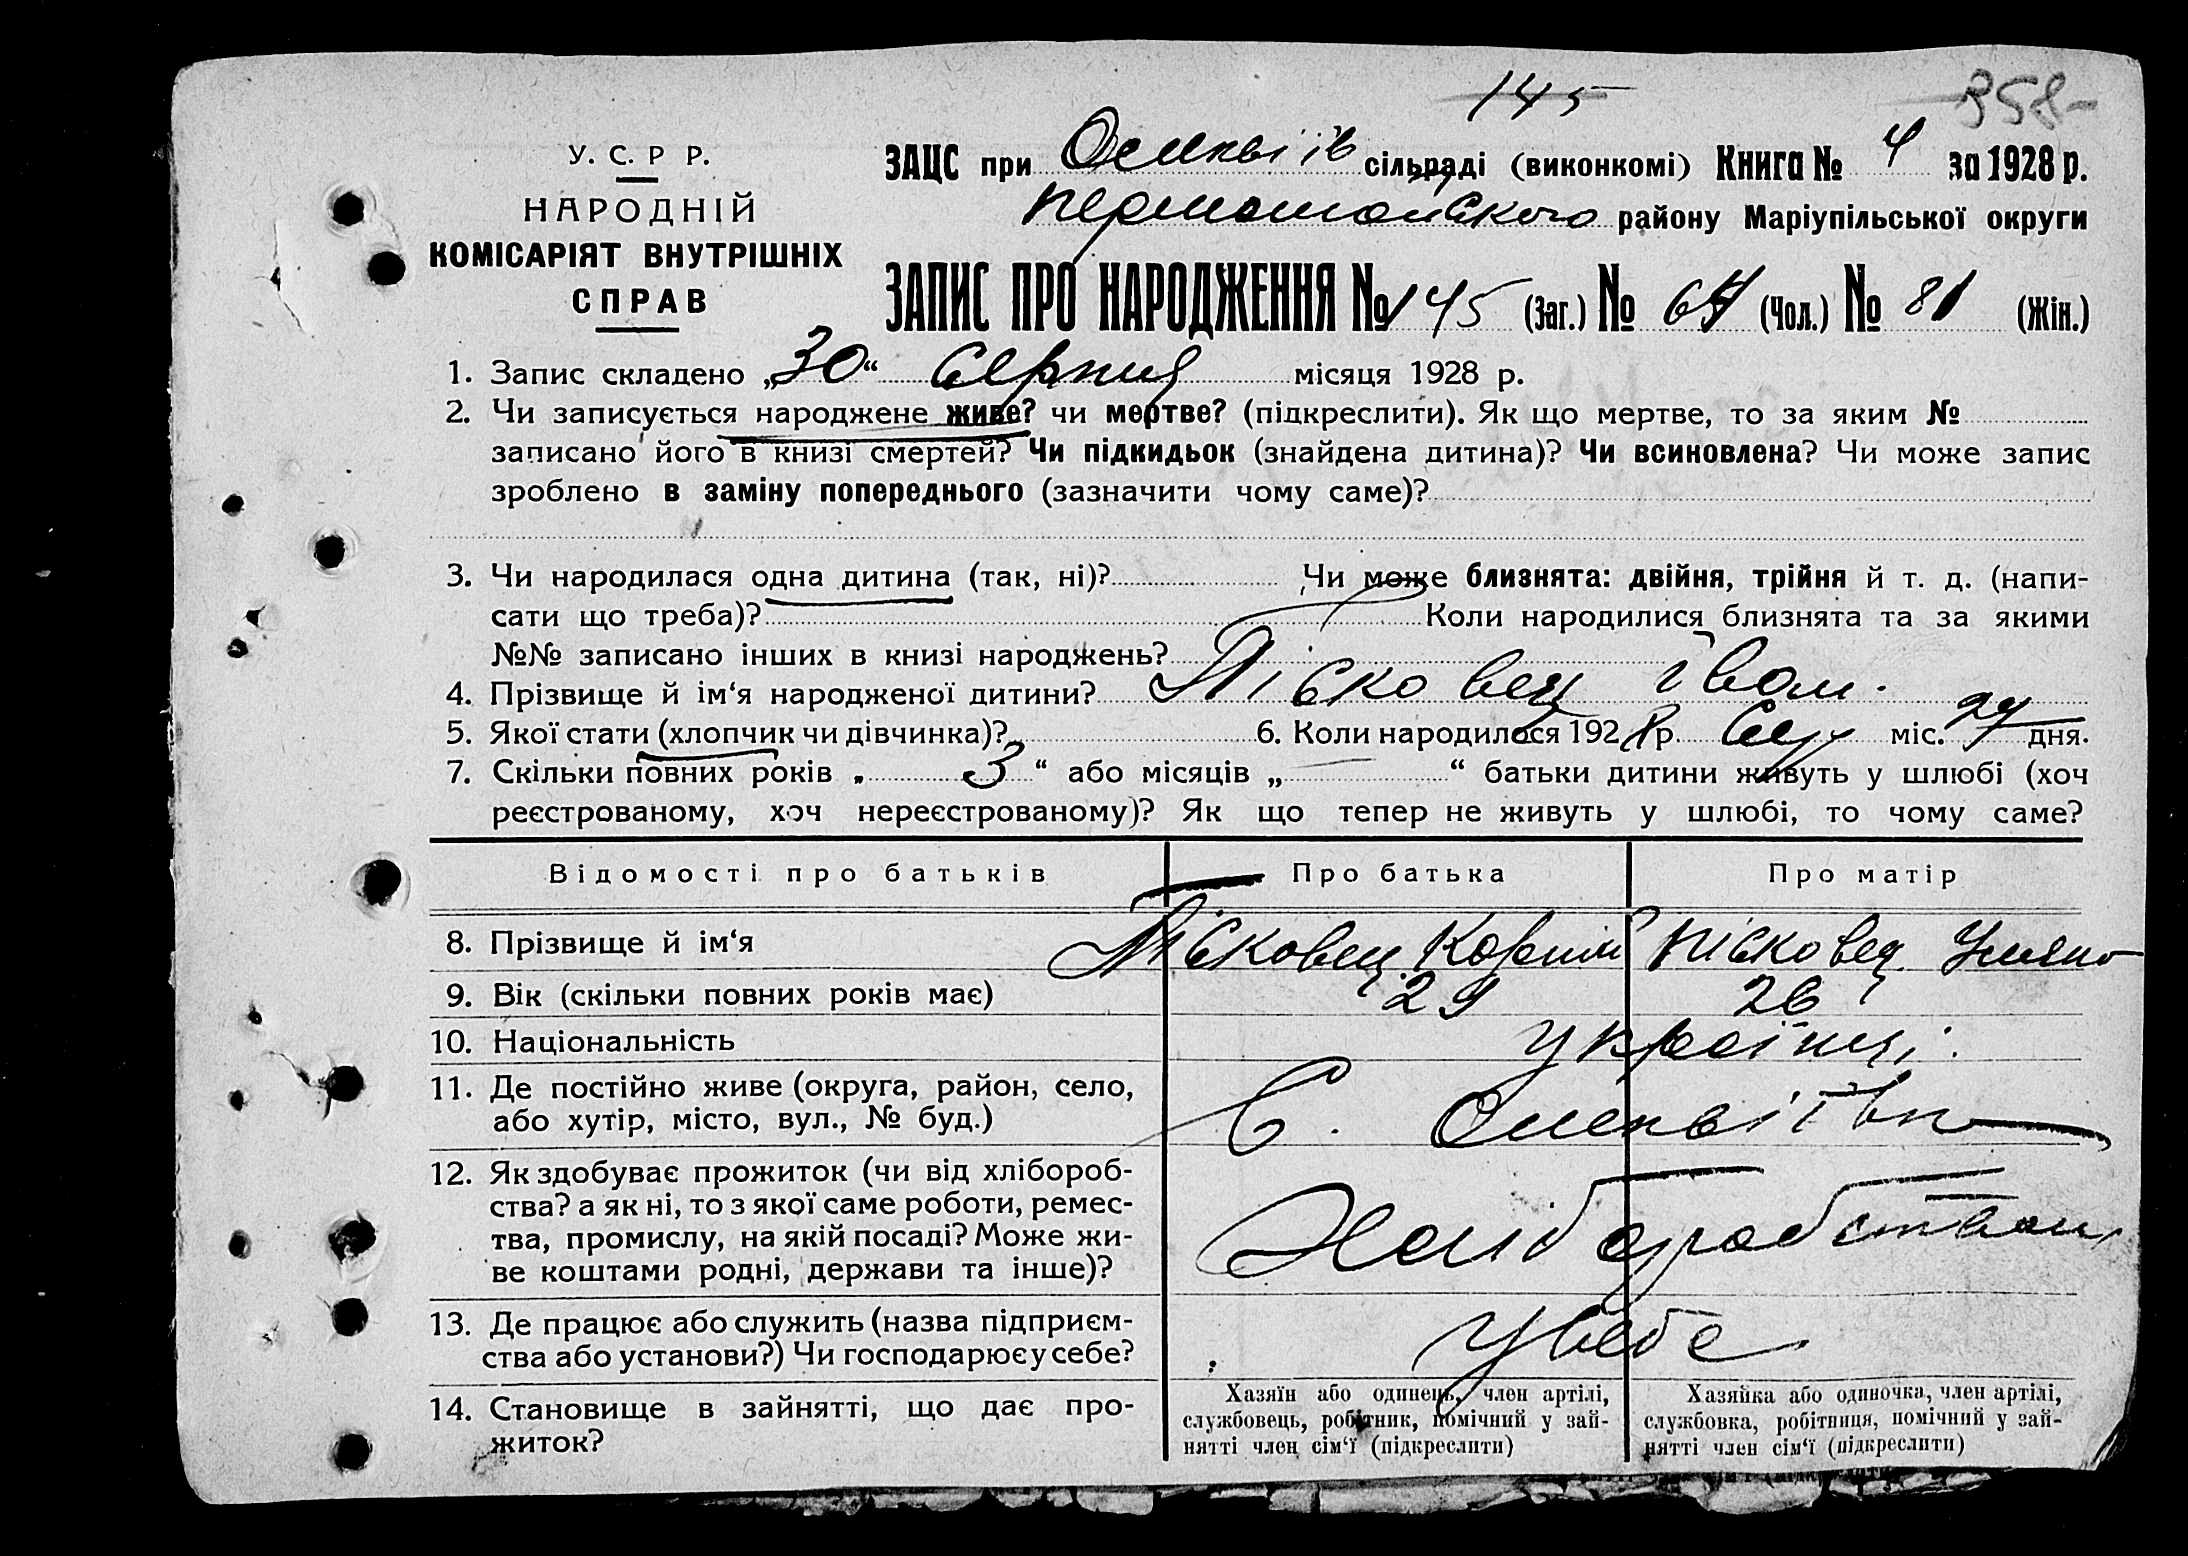 145 358
У. С. Р Р.
НАРОДНІЙ
КОМІСАРІЯТ ВНУТРІШНІХ
СПРАВ
ЗАЦС при сільраді (виконкомі) Книга № 4 за 1928 р.
району Маріупільської округи
ЗАПИС ПРО НАРОДЖЕННЯ № 145 (Заг.) № 64 (Чол.) № 81 (Жін.)
1. Запис складено „30“ Серпня місяця 1928 р.
2. Чи записується народжене живе? чи мертве? (підкреслити). Як що мертве, то за яким №
записано його в книзі смертей? Чи підкидьок (знайдена дитина)? Чи всиновлена? Чи може запис
зроблено в заміну попереднього (зазначити чому саме)?
3. Чи народилася одна дитина (так, ні)? Чи може близнята: двійня, трійня й т. д. (напи-
сати що треба)? Коли народилися близнята та за якими
№№ записано інших в книзі народжень?
4. Прізвище й ім‘я народженої дитини? Пісковец Іван.
5. Якої стати (хлопчик чи дівчинка)? 6. Коли народилося 1928 р. Сер міс. 27 дня.
7. Скільки повних років „ 3 “ або місяців „ “ батьки дитини живуть у шлюбі (хоч
реєстрованому, хоч нереєстрованому)? Як що тепер не живуть у шлюбі, то чому саме?
Відомості про батьків Про батька Про матір
8. Прізвище й ім‘я Пісковец Корній Пісковец Уляна
9. Вік (скільки повних років має) 29 26
10. Національність українці.
11. Де постійно живе (округа, район, село,
або хутір, місто, вул., № буд.) С.
12. Як здобуває прожиток (чи від хлібороб-
ства? а як ні, то з якої саме роботи, ремес-
тва, промислу, на якій посаді? Може жи-
ве коштами родні, держави та інше)?
Хліборобством
13. Де працює або служить (назва підприєм-
ства або установи?) Чи господарює у себе?
У себе
14. Становище в зайнятті, що дає про-
житок?
Хазяїн або одинець, член артілі,
службовець, робітник, помічний у зай-
нятті член сім‘ї (підкреслити)
Хазяйка або одиночка, член артілі,
службовка, робітниця, помічний у зай-
нятті член сім‘ї (підкреслити)